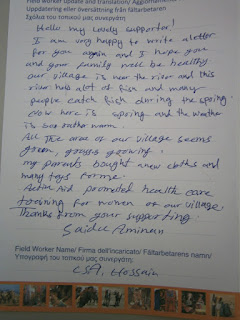 Field Worker update and translation/ Aggiornamen
Uppdatering eller översättning från fältarbetaren
Σχόλια του τοπικού μας συνεργάτη
Hello my lovely supporter!
I am very happy to write a letter
for you again and I hope you
and your family will be healthy
our village is near the river and this
river has lot of fish and many
people catch fish during the spring.
Now here is spring and the weather
is warm.
All the area of our village seems
green, grass growing.
my parents bought new cloths and
many toys for me.
Action Aid promoted health care
training for women of our village
Thanks from your supporting.
Saidu Aminan
Field Worker Name/ Firma dell'incaricato/ Fältarbetarens namn/
Υπογραφή του τοπικού μας συνεργάτη:
CSA, Hossain